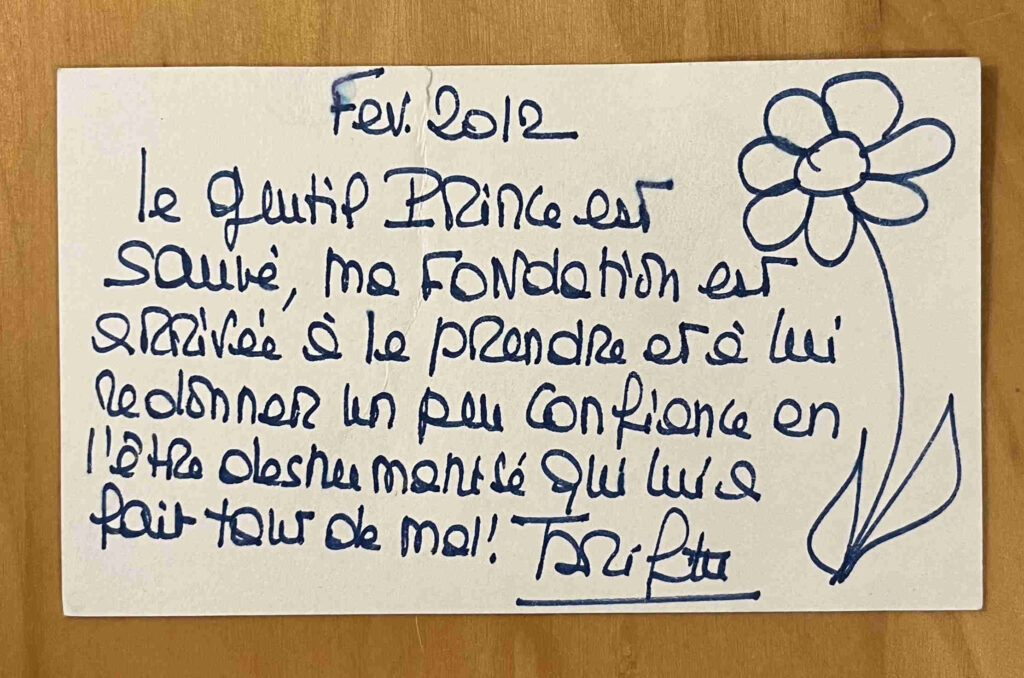 Fev. 2012
le gentil PRINCe est
sauvé, ma FONdatiON est
aRRivée à le pRendRe et à lui
redonner un peu confiance en
l'être deshumanisé qui lui a
fait tant de mal!